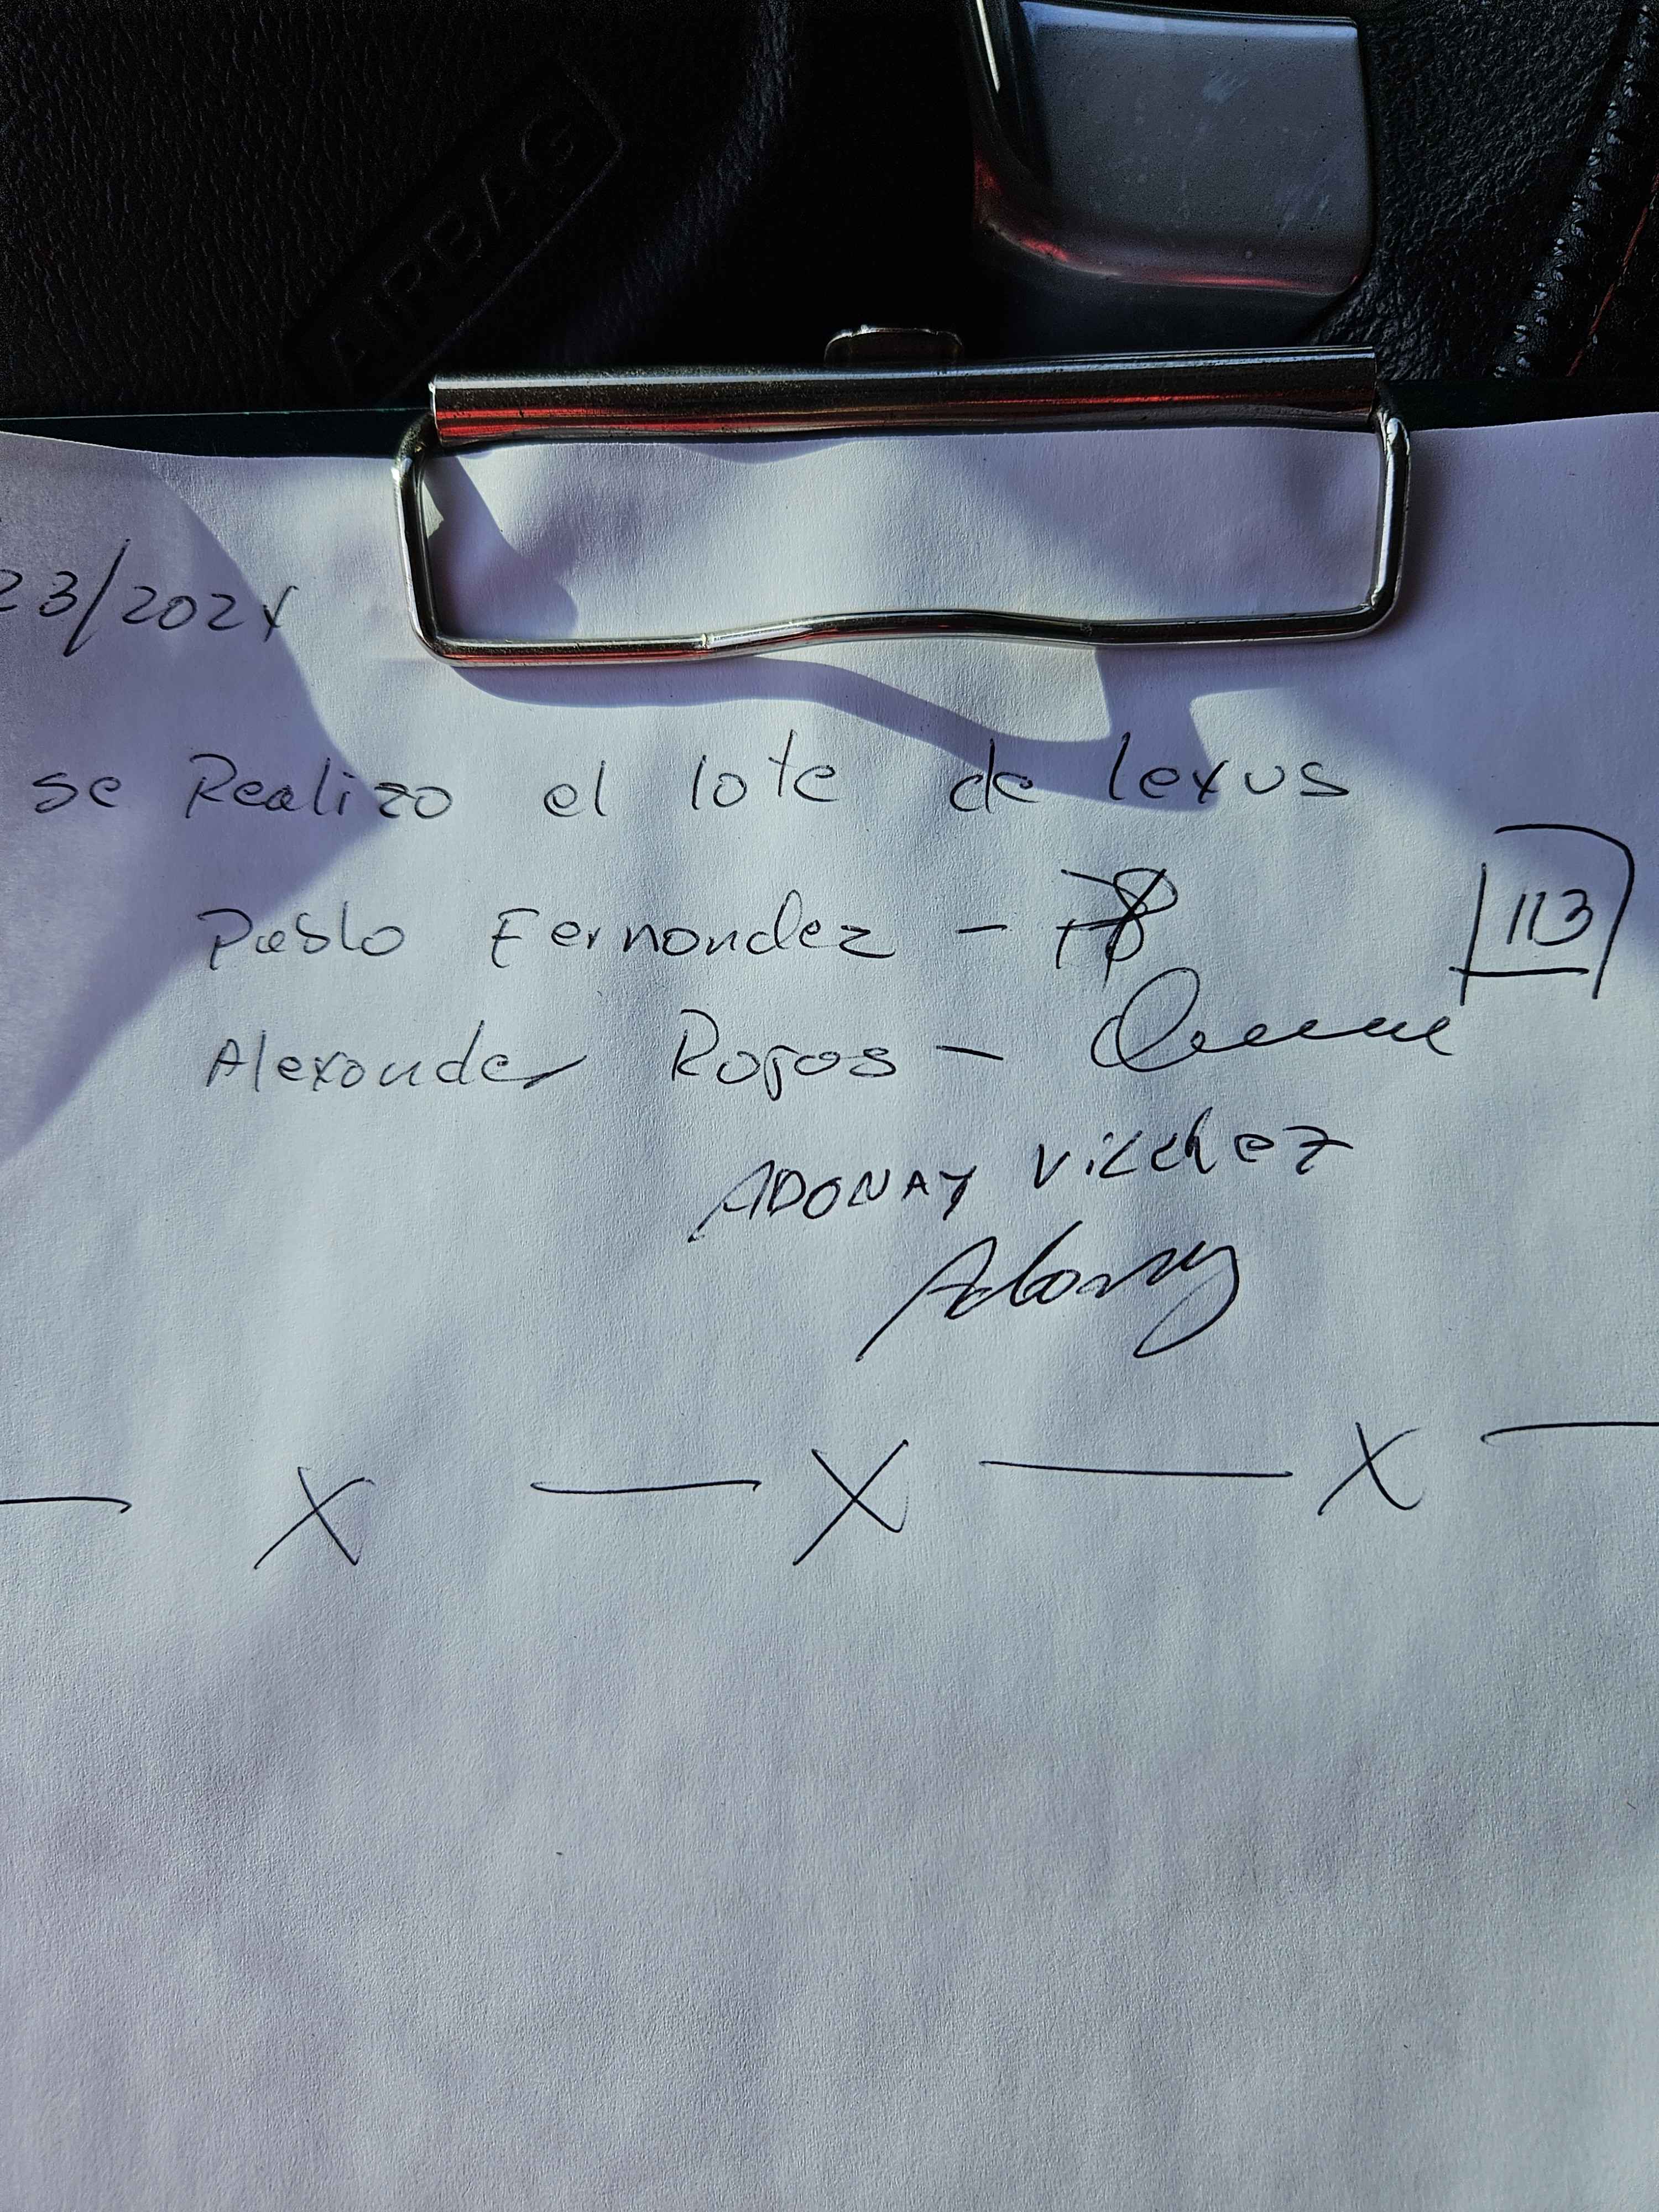 AIRBAG
23/2024
se Realizo el lote de lexus
Pablo Fernandez -
113
Alexander Rojas -
ADONAY Vilchez
Adonay
— X — X — X —